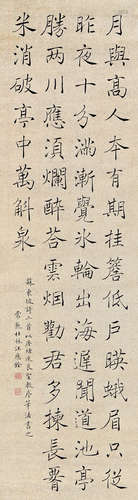 月與高人本有期挂簷低戶映蛾眉只從
昨夜十分滿漸覺冰輪出海遲聞道池亭
勝兩川應須爛醉荅雲烟勸君多揀長腰
米消破亭中萬斛泉
蘇東坡詩二首以良聖教序筆法書之
常熟汪應銓